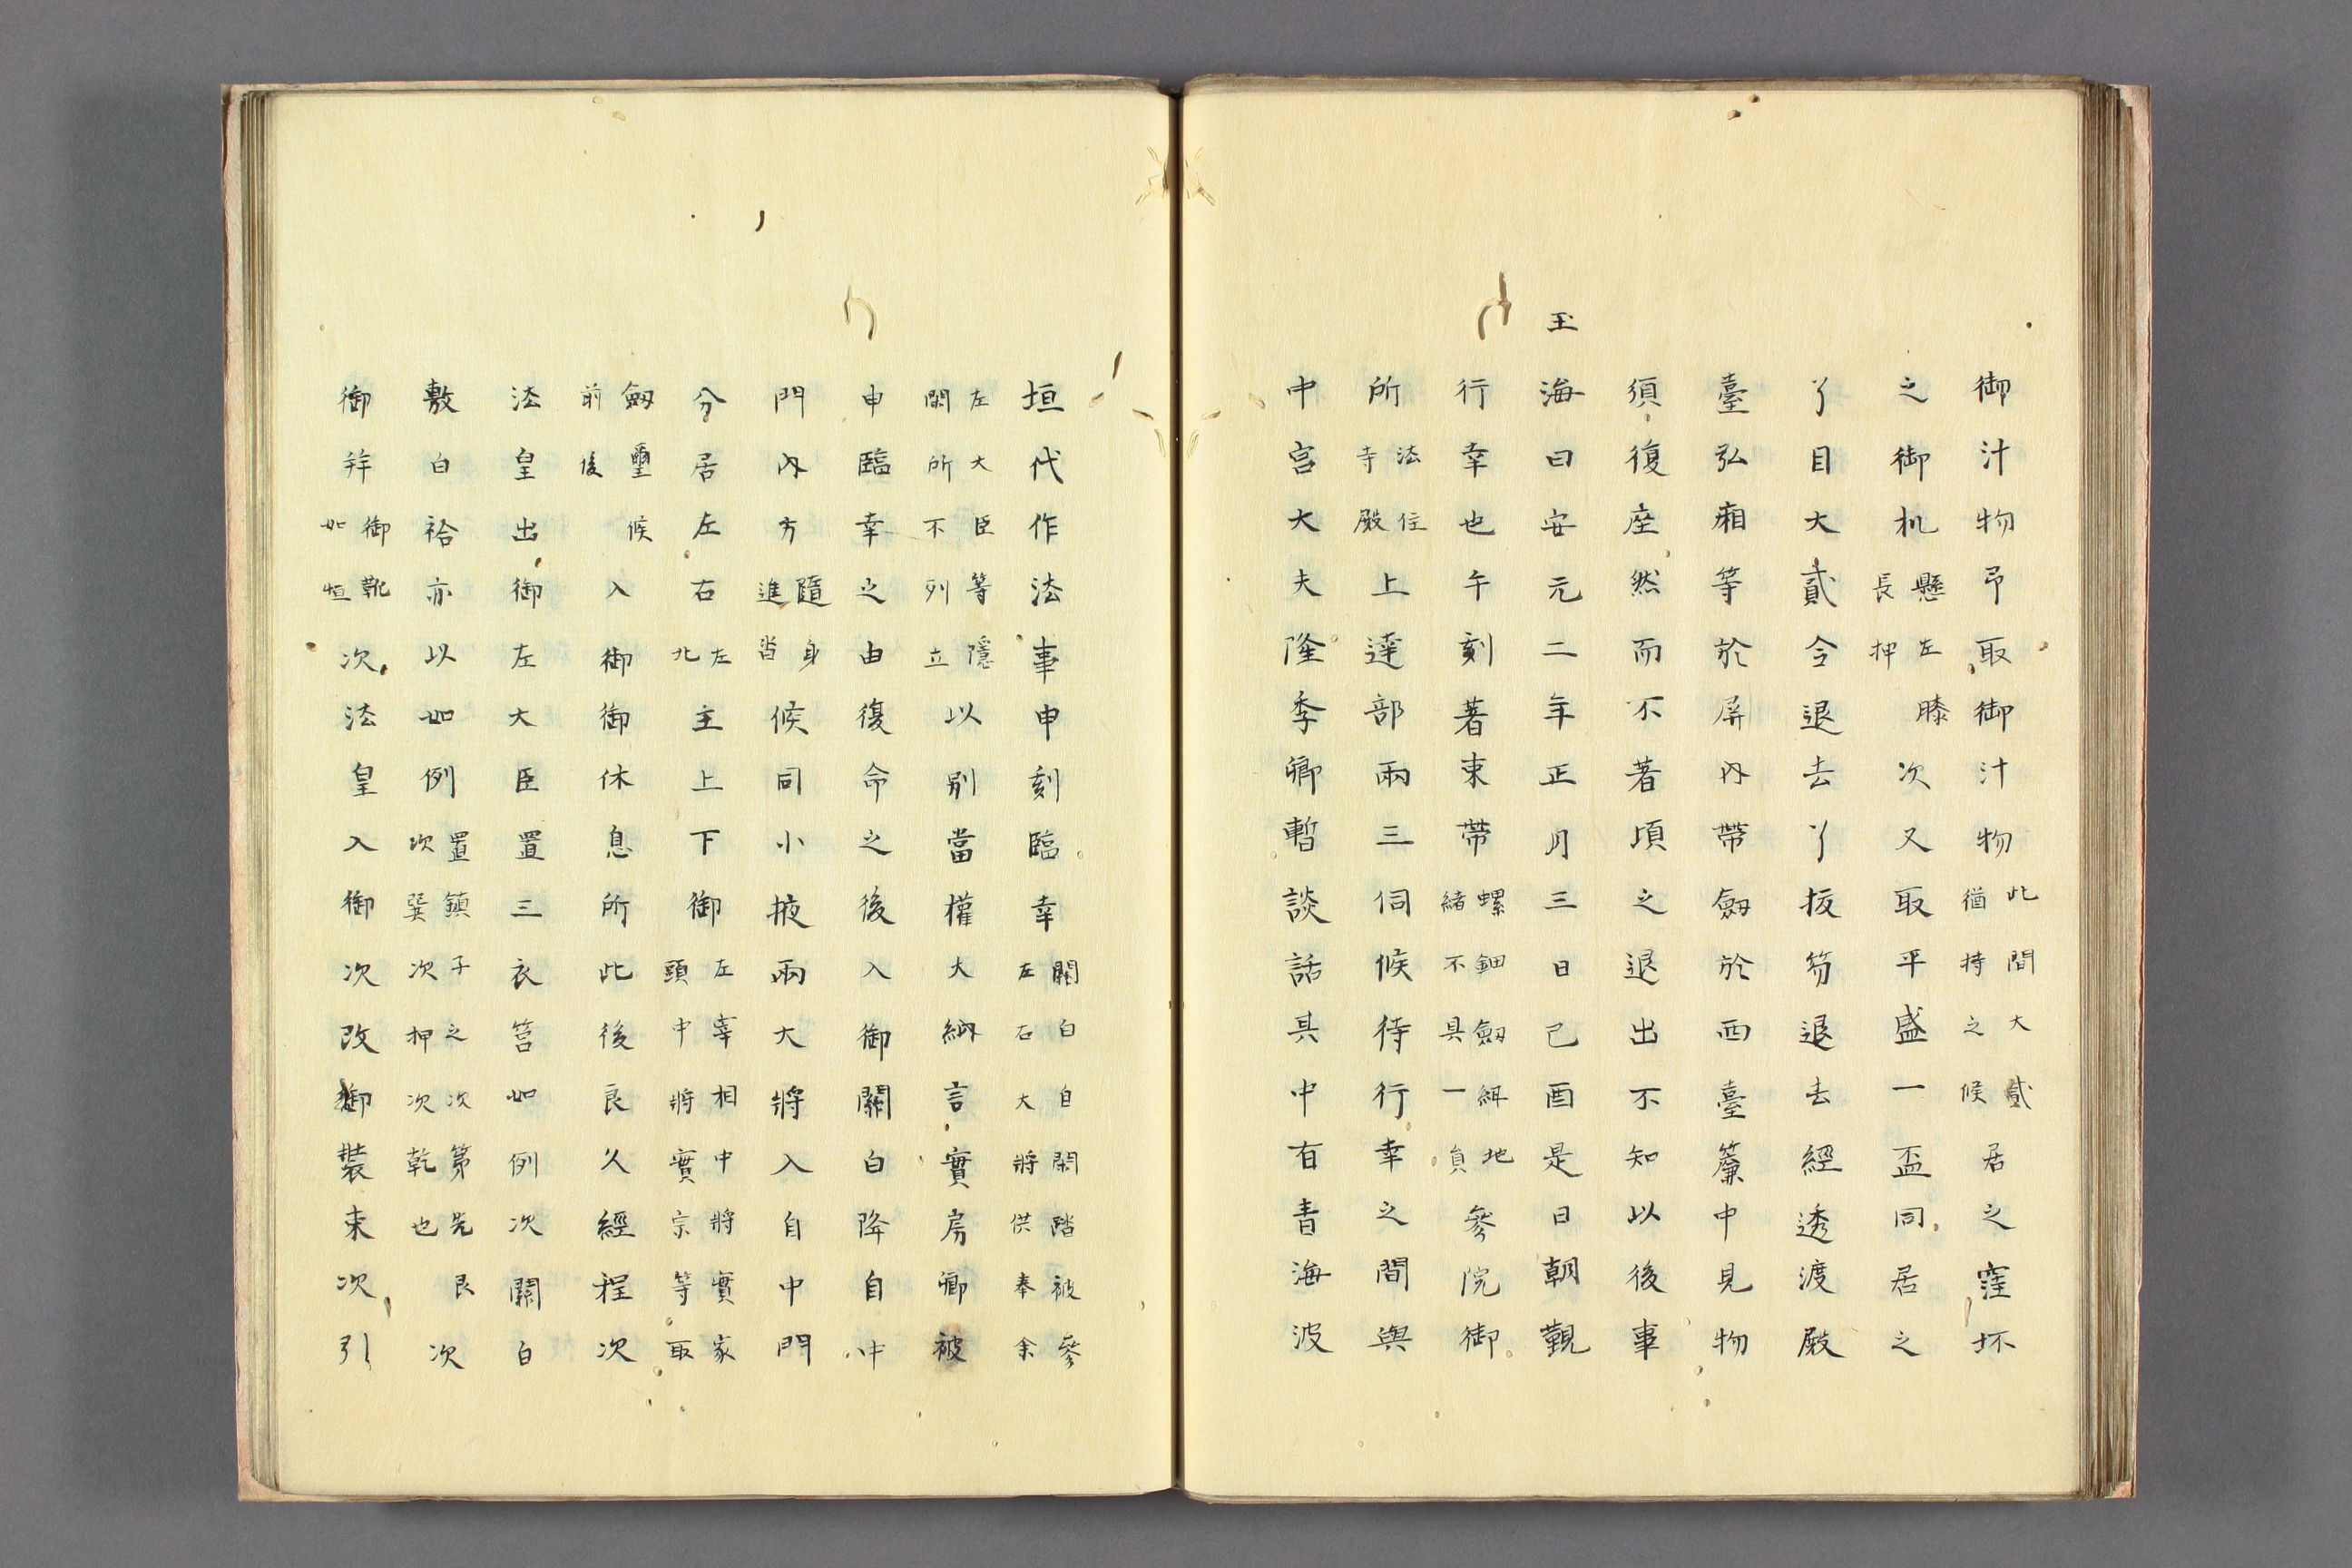 御汁物弔取御汁物此間大貳猶持之候居之窪坏
之御机懸左膝長押次又取平盛一盃同居之
了目大貳令退去了抜笏退去經透渡殿
臺弘廂等於屏內帶劔於西臺簾中見物
須復座然而不著頃之退出不知以後事
玉海曰安元二年正月三日己酉是日朝覲
行幸也午刻著束帶螺鈿劔紺地緒不具一員參院御
所法住寺殿上達部兩三伺候待行幸之間與
中宮大夫隆季卿暫談話其中有青海波
垣代作法事申刻臨幸關白自閑踏被參左右大將供奉余
左大臣等隱閑所不列立以別當權大納言實房卿被
申臨幸之由復命之後入御關白降自中
門內方隨身進沓候同小掖兩大將入自中門
分居左右左北主上下御左宰相中將實家頭中將實宗等取
劔璽候前後入御御休息所此後良久經程次
法皇出御左大臣置三衣筥如例次關白
敷白袷亦以如例置鎮子之次第先艮次次巽次坤次乾也次
御拜御靴如恒次法皇入御次改御裝束次引